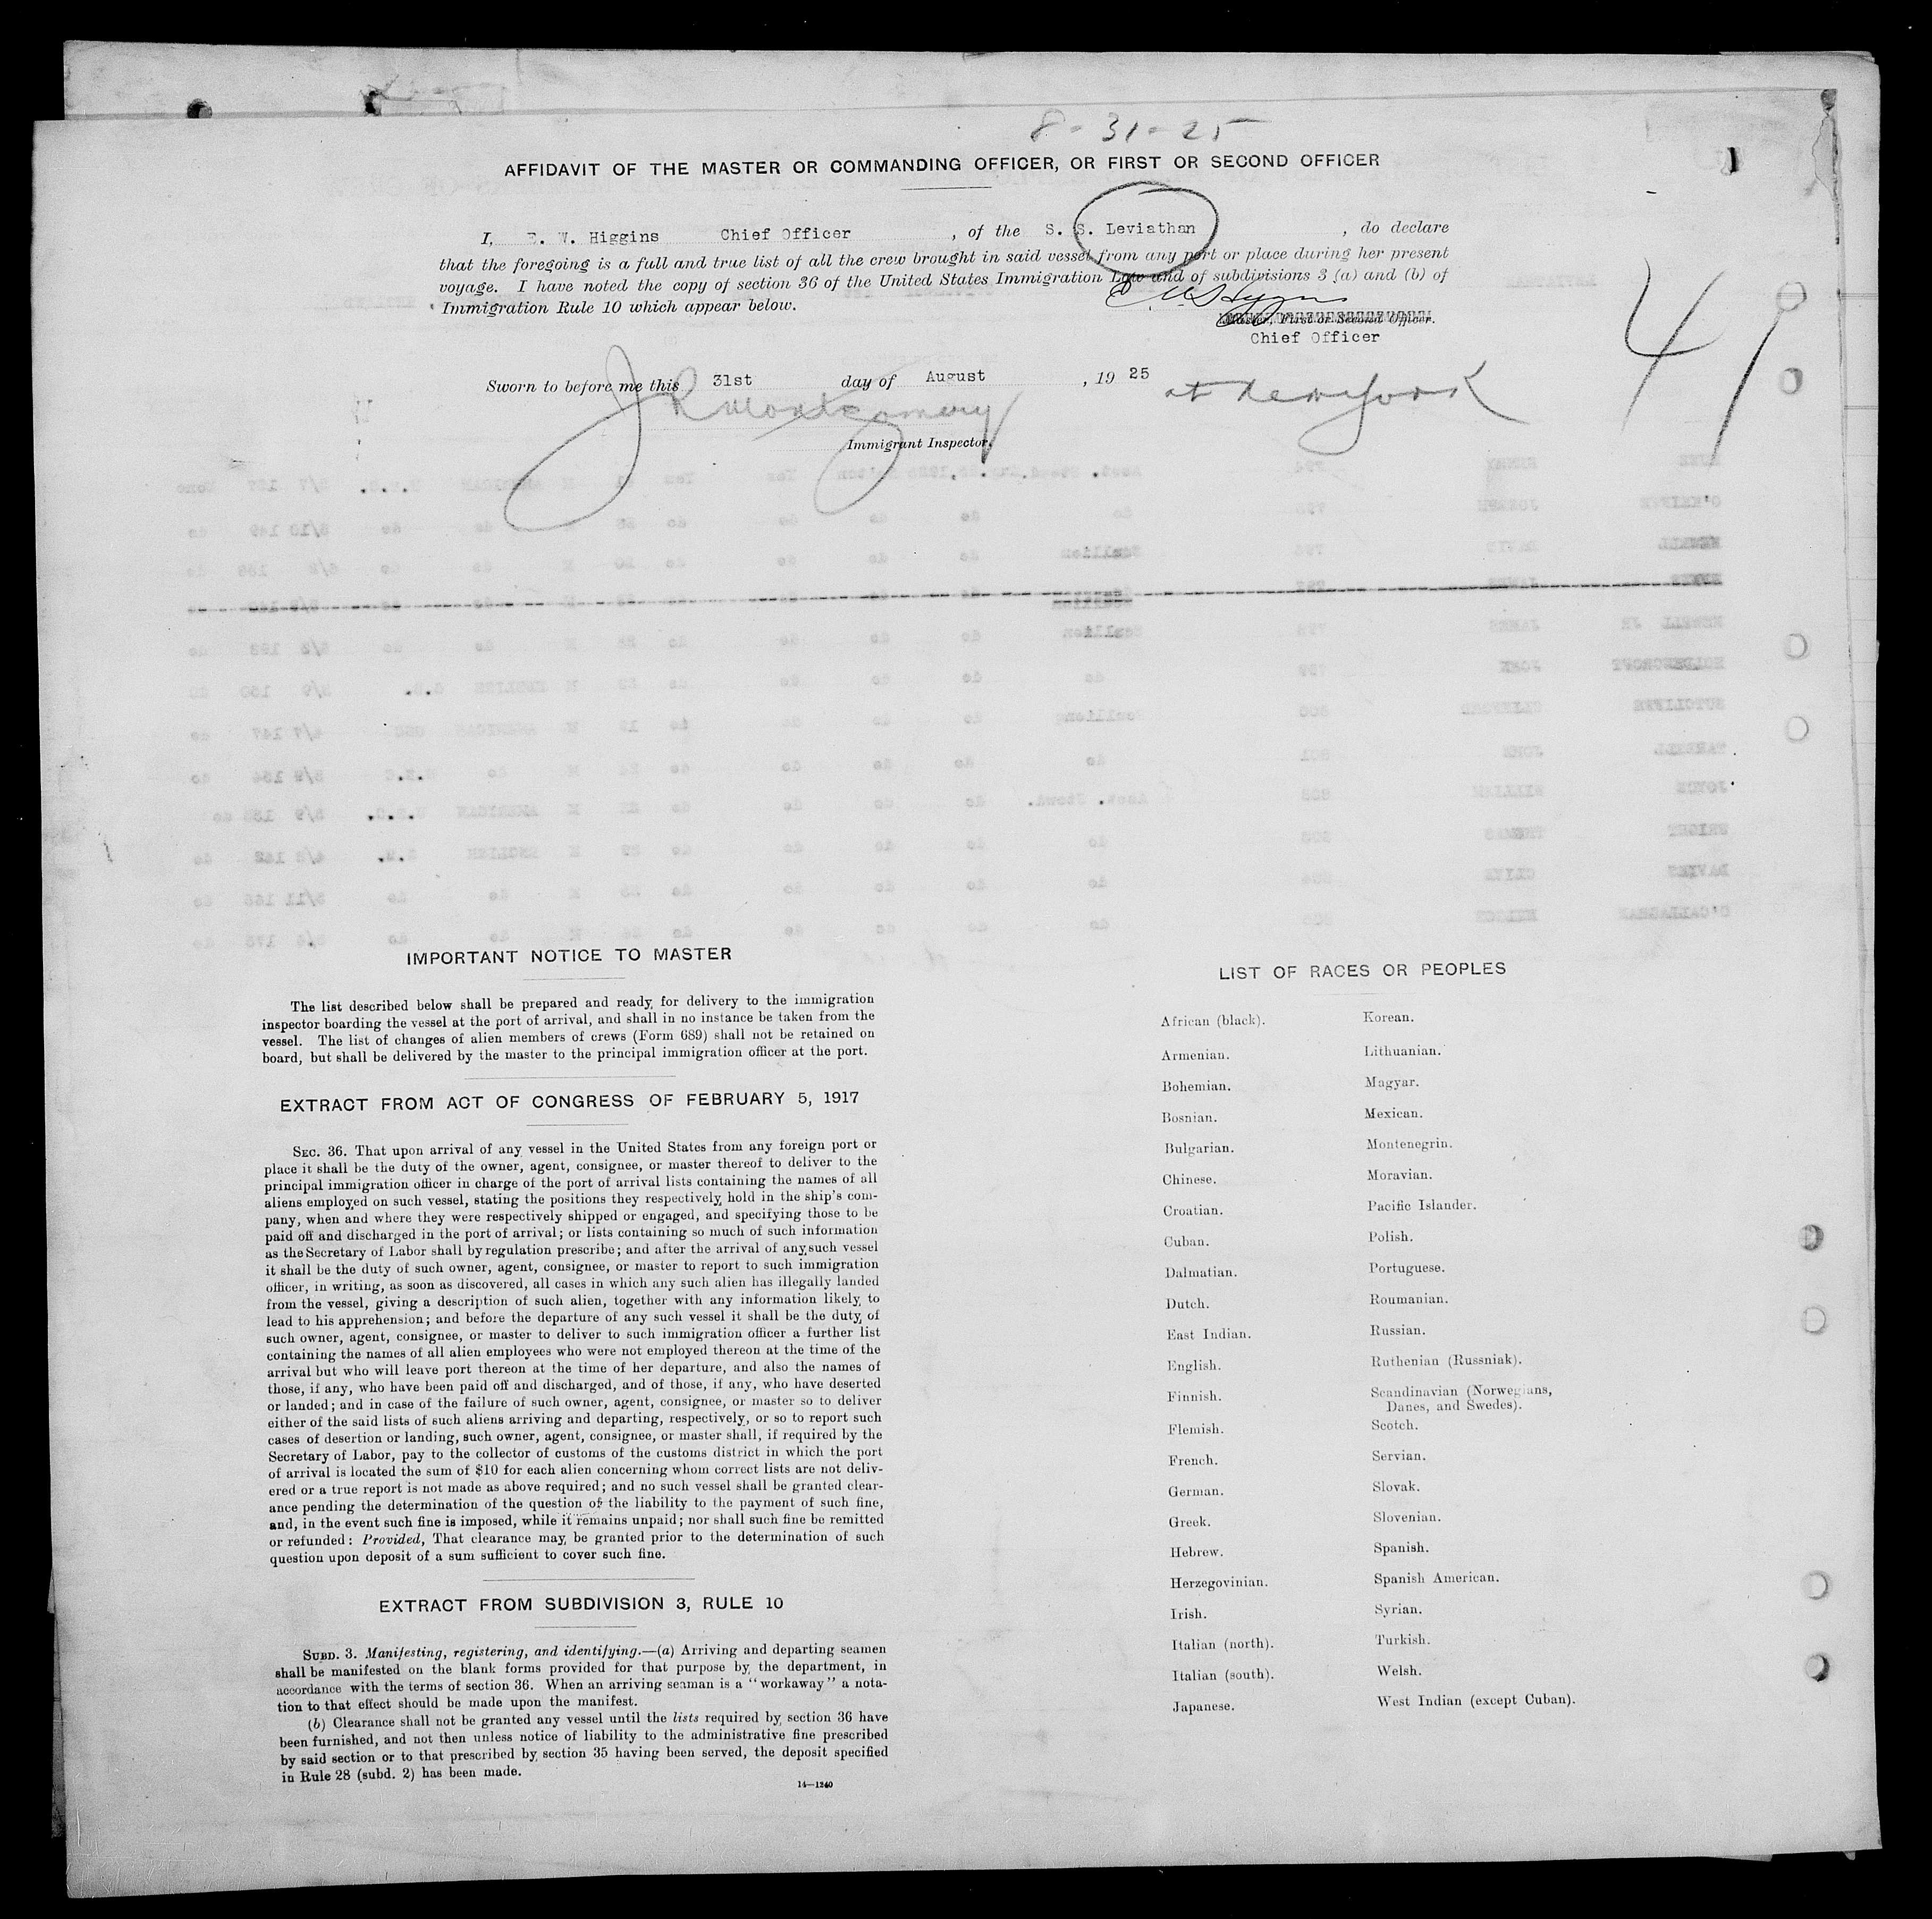 8-31-25
AFFIDAVIT OF THE MASTER OR COMMANDING OFFICER, OR FIRST OR SECOND OFFICER
I, E. W. Higgins Chief Officer , of the S. S. Leviathan , do declare
that the foregoing is a full and true list of all the crew brought in said vessel from any port or place during her present
voyage. I have noted the copy of section 36 of the United States Immigration Law and of subdivisions 3 (a) and (b) of
Immigration Rule 10 which appear below.
E W Higgins
Master, First or Second Officer.
Chief Officer
41
Sworn to before me this 31st day of August , 19 25 at New York
J R Montgomery
Immigrant Inspector.
IMPORTANT NOTICE TO MASTER
The list described below shall be prepared and ready for delivery to the immigration
inspector boarding the vessel at the port of arrival, and shall in no instance be taken from the
vessel. The list of changes of alien members of crews (Form 689) shall not be retained on
board, but shall be delivered by the master to the principal immigration officer at the port.
EXTRACT FROM ACT OF CONGRESS OF FEBRUARY 5, 1917
SEC. 36. That upon arrival of any vessel in the United States from any foreign port or
place it shall be the duty of the owner, agent, consignee, or master thereof to deliver to the
principal immigration officer in charge of the port of arrival lists containing the names of all
aliens employed on such vessel, stating the positions they respectively hold in the ship's com-
pany, when and where they were respectively shipped or engaged, and specifying those to be
paid off and discharged in the port of arrival; or lists containing so much of such information
as the Secretary of Labor shall by regulation prescribe; and after the arrival of any such vessel
it shall be the duty of such owner, agent, consignee, or master to report to such immigration
officer, in writing, as soon as discovered, all cases in which any such alien has illegally landed
from the vessel, giving a description of such alien, together with any information likely to
lead to his apprehension; and before the departure of any such vessel it shall be the duty of
such owner, agent, consignee, or master to deliver to such immigration officer a further list
containing the names of all alien employees who were not employed thereon at the time of the
arrival but who will leave port thereon at the time of her departure, and also the names of
those, if any, who have been paid off and discharged, and of those, if any, who have deserted
or landed; and in case of the failure of such owner, agent, consignee, or master so to deliver
either of the said lists of such aliens arriving and departing, respectively, or so to report such
cases of desertion or landing, such owner, agent, consignee, or master shall, if required by the
Secretary of Labor, pay to the collector of customs of the customs district in which the port
of arrival is located the sum of $10 for each alien concerning whom correct lists are not deliv-
ered or a true report is not made as above required; and no such vessel shall be granted clear-
ance pending the determination of the question of the liability to the payment of such fine,
and, in the event such fine is imposed, while it remains unpaid; nor shall such fine be remitted
or refunded: Provided, That clearance may be granted prior to the determination of such
question upon deposit of a sum sufficient to cover such fine.
EXTRACT FROM SUBDIVISION 3, RULE 10
SUBD. 3. Manifesting, registering, and identifying.—(a) Arriving and departing seamen
shall be manifested on the blank forms provided for that purpose by the department, in
accordance with the terms of section 36. When an arriving seaman is a "workaway" a nota-
tion to that effect should be made upon the manifest.
(b) Clearance shall not be granted any vessel until the lists required by section 36 have
been furnished, and not then unless notice of liability to the administrative fine prescribed
by said section or to that prescribed by section 35 having been served, the deposit specified
in Rule 28 (subd. 2) has been made.
14—1240
LIST OF RACES OR PEOPLES
African (black). Korean.
Armenian. Lithuanian.
Bohemian. Magyar.
Bosnian. Mexican.
Bulgarian. Montenegrin.
Chinese. Moravian.
Croatian. Pacific Islander.
Cuban. Polish.
Dalmatian. Portuguese.
Dutch. Roumanian.
East Indian. Russian.
English. Ruthenian (Russniak).
Finnish. Scandinavian (Norwegians,
Danes, and Swedes).
Flemish. Scotch.
French. Servian.
German. Slovak.
Greek. Slovenian.
Hebrew. Spanish.
Herzegovinian. Spanish American.
Irish. Syrian.
Italian (north). Turkish.
Italian (south). Welsh.
Japanese. West Indian (except Cuban).